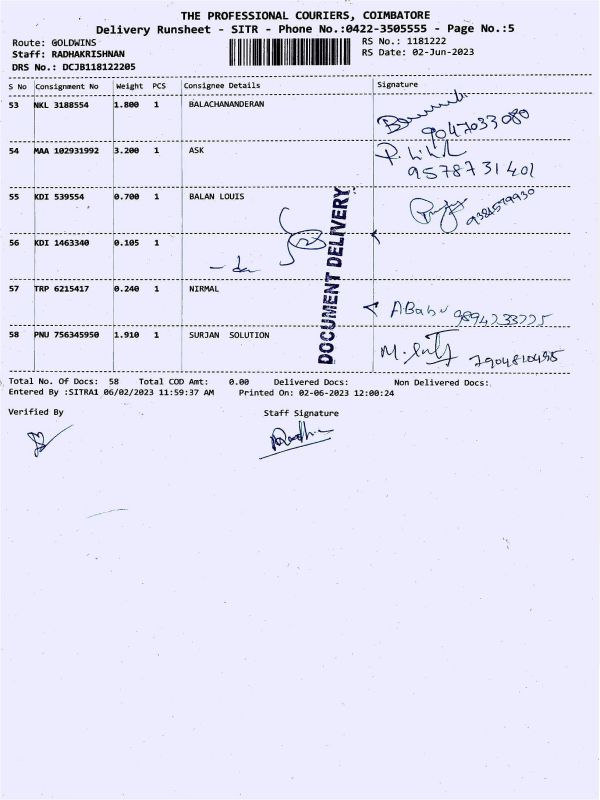 THE PROFESSIONAL COURIERS, COIMBATORE
Delivery Runsheet - SITR - Phone No.:0422-3505555 - Page No.:5
Route: GOLDWINS RS No.: 1181222
Staff: RADHAKRISHNAN RS Date: 02-Jun-2023
DRS No.: DCJB118122205
S No Consignment No Weight PCS Consignee Details Signature
53 NKL 3188554 1.800 1 BALACHANANDERAN
9047033080
54 MAA 102931992 3.200 1 ASK
9578731401
55 KDI 539554 0.700 1 BALAN LOUIS
9384579930
DOCUMENT DELIVERY
56 KDI 1463340 0.105 1
57 TRP 6215417 0.240 1 NIRMAL
ABabu
58 PNU 756345950 1.910 1 SURJAN SOLUTION
7904810495
Total No. Of Docs: 58 Total COD Amt: 0.00 Delivered Docs: Non Delivered Docs:
Entered By :SITRA1 06/02/2023 11:59:37 AM Printed On: 02-06-2023 12:00:24
Verified By Staff Signature